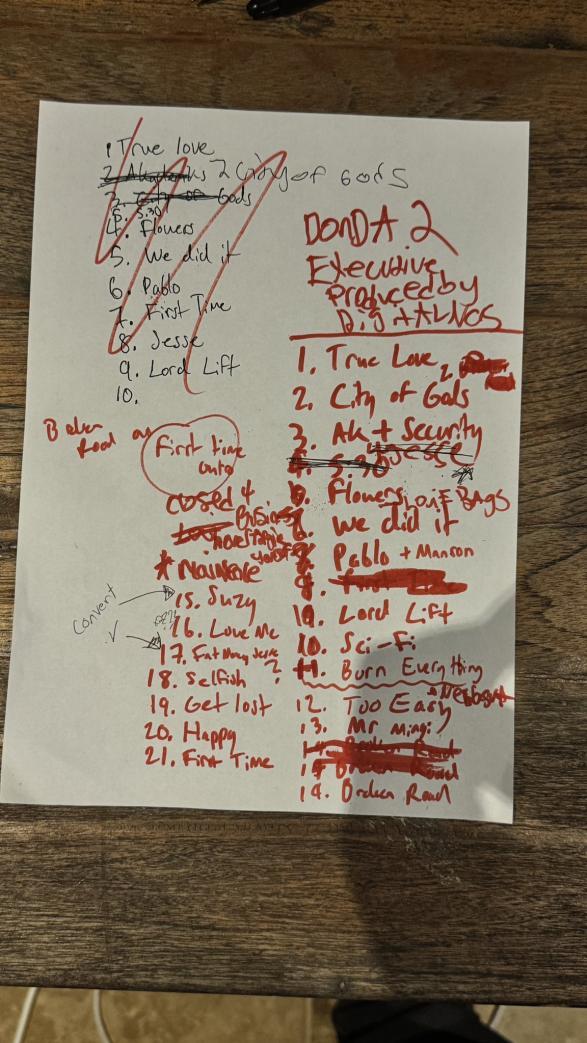 1 True love
2 City of Gods
5. 5:30
4. Flowers
5. We did it
6. Pablo
7. First Time
8. Jesse
9. Lord Lift
10.
DONDA. 2
Executive
produced by
1. True Love
2. City of Gods
3. Ak + Security
Jesse
5:30
Flowers Louie Bags
6. We did it
Pablo + Manson
9.
Lord Lift
10. Sci-Fi
11. Burn Everything
12. Too Easy
13. Mr Mingi
14. Broken Road
Broken
Road
First time
closed 4
Business
15. Suzy
16. Love Me
17. Fat Money Jesse
18. Selfish ?
19. Get lost
20. Happy
21. First Time
convert